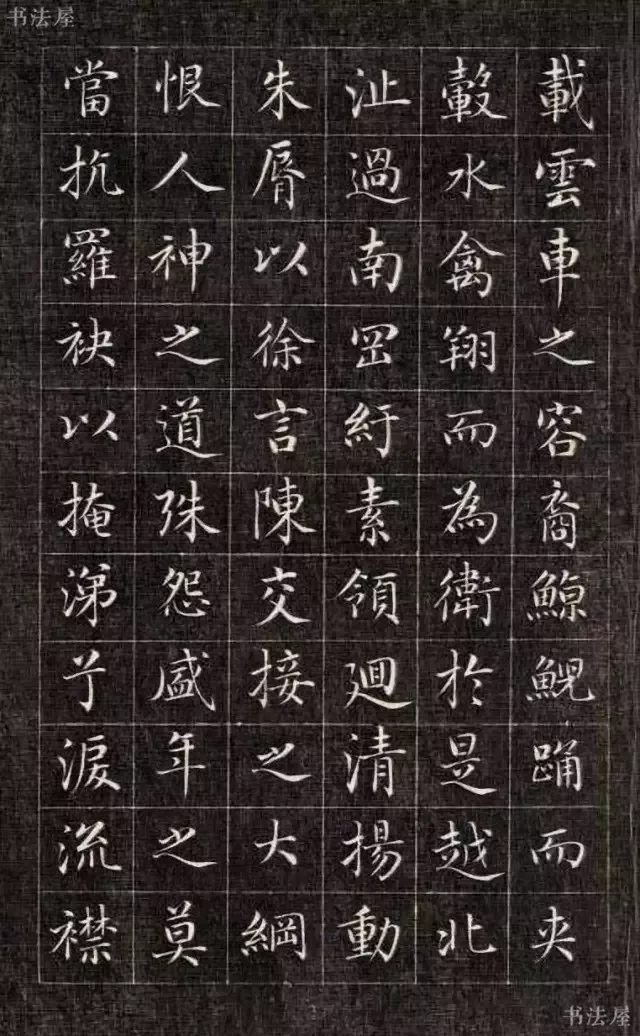 书法屋
載雲車之容裔鯨鯢踊而夾
轂水禽翔而為衛於是越北
沚過南岡紆素領迴清揚動
朱脣以徐言陳交接之大綱
恨人神之道殊怨盛年之莫
當抗羅袂以掩涕兮淚流襟
书法屋